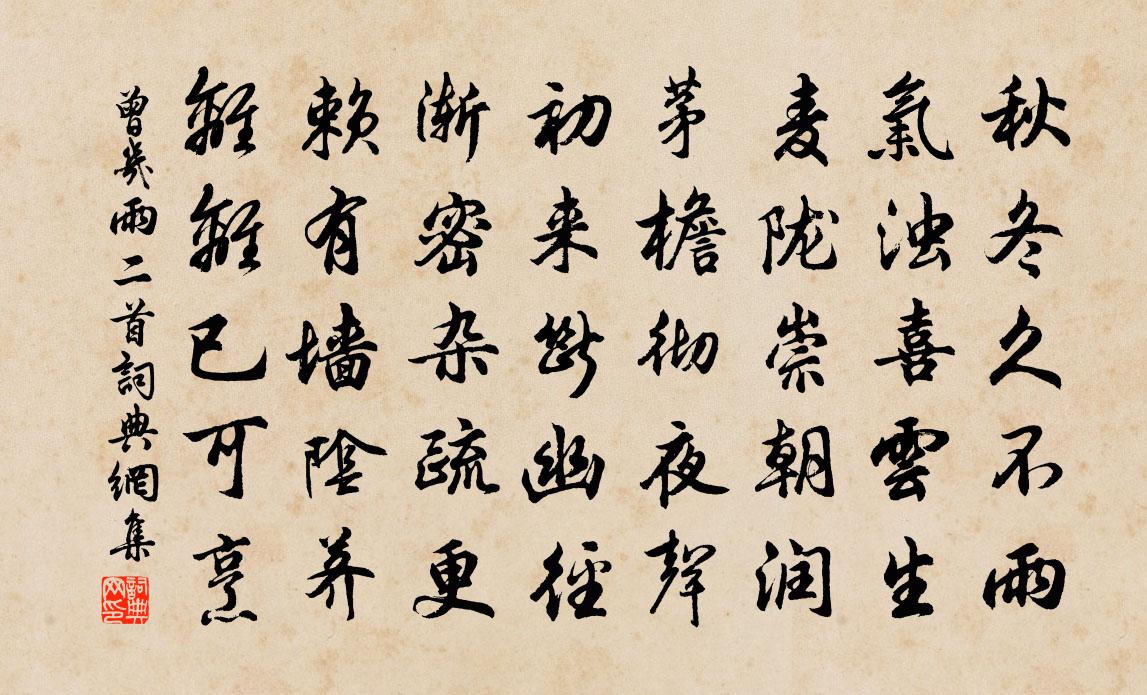 秋冬久不雨
氣浊喜雲生
麦陇崇朝润
茅檐彻夜聲
初来断幽徑
渐密杂疏更
赖有墙陰荠
離離已可烹
曾幾雨二首詞典網集
詞典网印